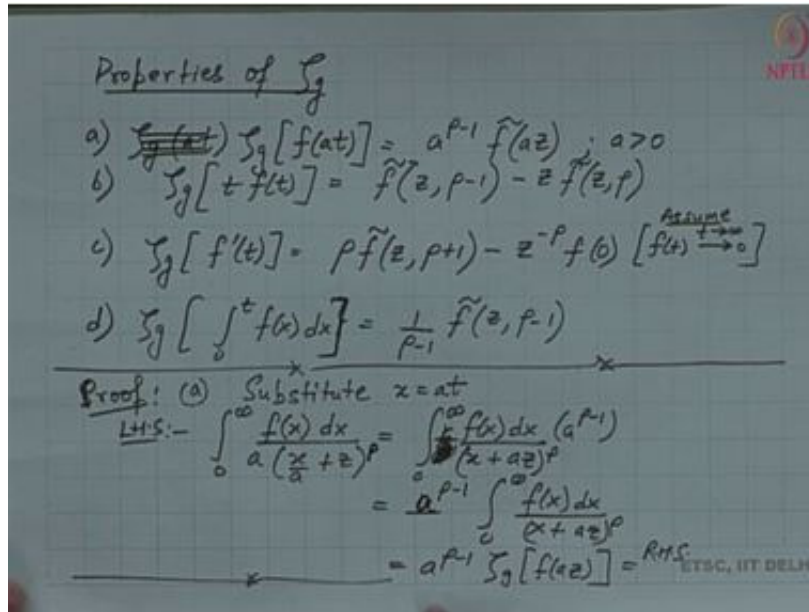 NPTEL
Properties of ζg
a) ζg[f(at)] = a^{ρ-1} f̃(az) ; a>0
b) ζg[t f(t)] = f̃(z, ρ-1) - z f̃(z, ρ)
Assume
c) ζg[f'(t)] = ρ f̃(z, ρ+1) - z^{-ρ} f(0) [f(t) \xrightarrow{t→∞} 0]
d) ζg[∫_0^t f(x) dx] = \frac{1}{ρ-1} f̃(z, ρ-1)
Proof: (a) Substitute x = at
LHS:- ∫_0^∞ \frac{f(x) dx}{a (\frac{x}{a} + z)^ρ} = ∫_0^∞ \frac{f(x) dx}{(x + az)^ρ} (a^{ρ-1})
= a^{ρ-1} ∫_0^∞ \frac{f(x) dx}{(x + az)^ρ}
= a^{ρ-1} ζg[f(az)] = R.H.S.
ETSC, IIT DELH